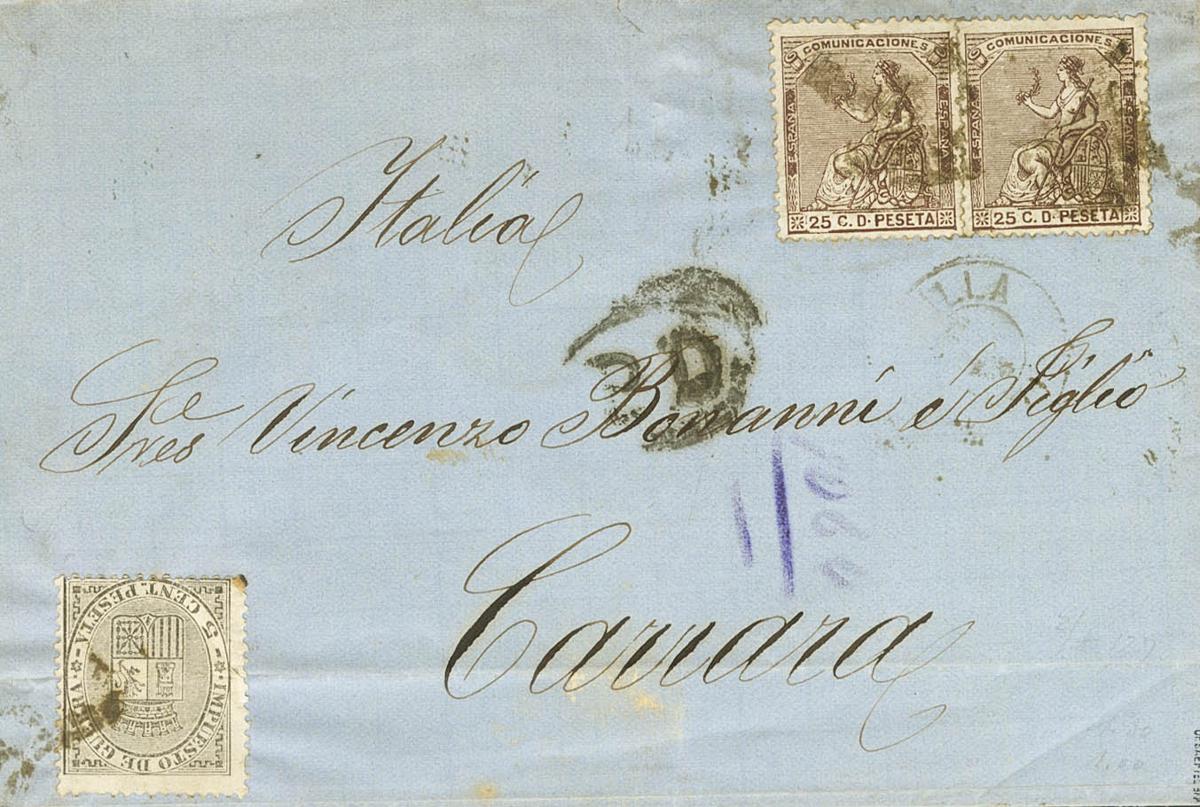 COMUNICACIONES
COMUNICACIONES
ESPAÑA
ESPAÑA
ESPAÑA
ESPAÑA
25 C. D. PESETA
25 C. D. PESETA
Italia
LLA
PD
Sres Vincenzo Bonanni é Figlio
Carrara
5 CENT. PESETA
IMPUESTO DE GUERRA